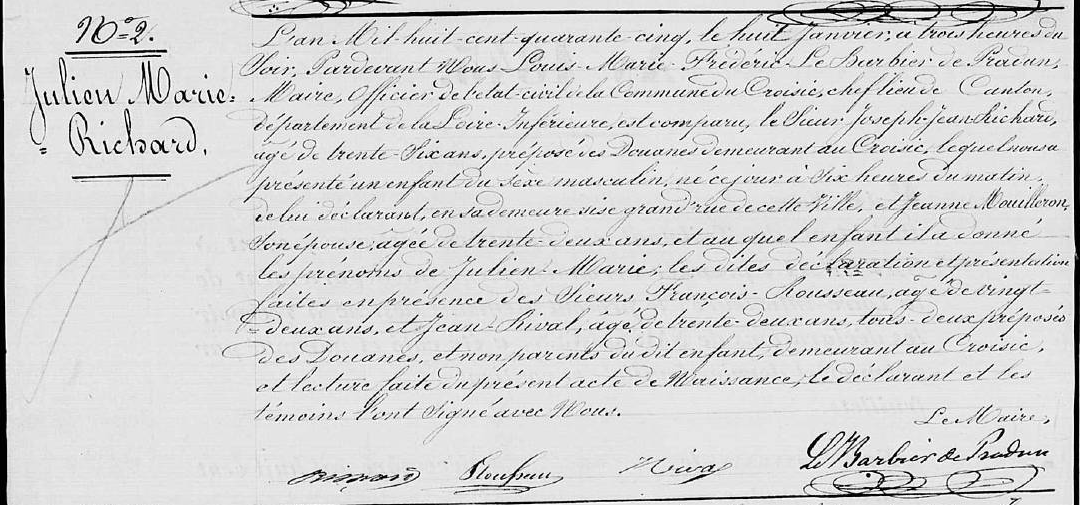 No=2.
Julien Marie=
= Richard.
L'an Mil-huit-cent-quarante-cinq, le huit Janvier, à trois heures du
Soir, Pardevant Nous Louis-Marie-Frédéric-Le Barbier de Pradun,
Maire, Officier de l'etat-civil de la Commune du Croisic, chef lieu de Canton,
département de la Loire-Inférieure, est comparu, le Sieur Joseph-Jean-Richard,
agé de trente-Six ans, préposé des Douanes demeurant au Croisic, lequel nous a
présenté un enfant du Sexe masculin, né ce jour à Six heures du matin,
de lui déclarant, en sa demeure sise grand rue de cette Ville, et Jeanne Mouilleron,
Son épouse, agée de trente-deux ans, et au quel enfant il a donné
les prénoms de Julien-Marie; les dites déclaration et présentation
faites en présence des Sieurs François-Rousseau, agé de vingt-
-deux ans, et Jean-Rival, âgé de trente-deux ans, tous-deux préposés
des Douanes, et non parents du dit enfant, demeurant au Croisic,
et lecture faite du présent acte de Naissance, le déclarant et les
témoins l'ont Signé avec Nous.
Le Maire,
Rousseau
Le Barbier de Pradun